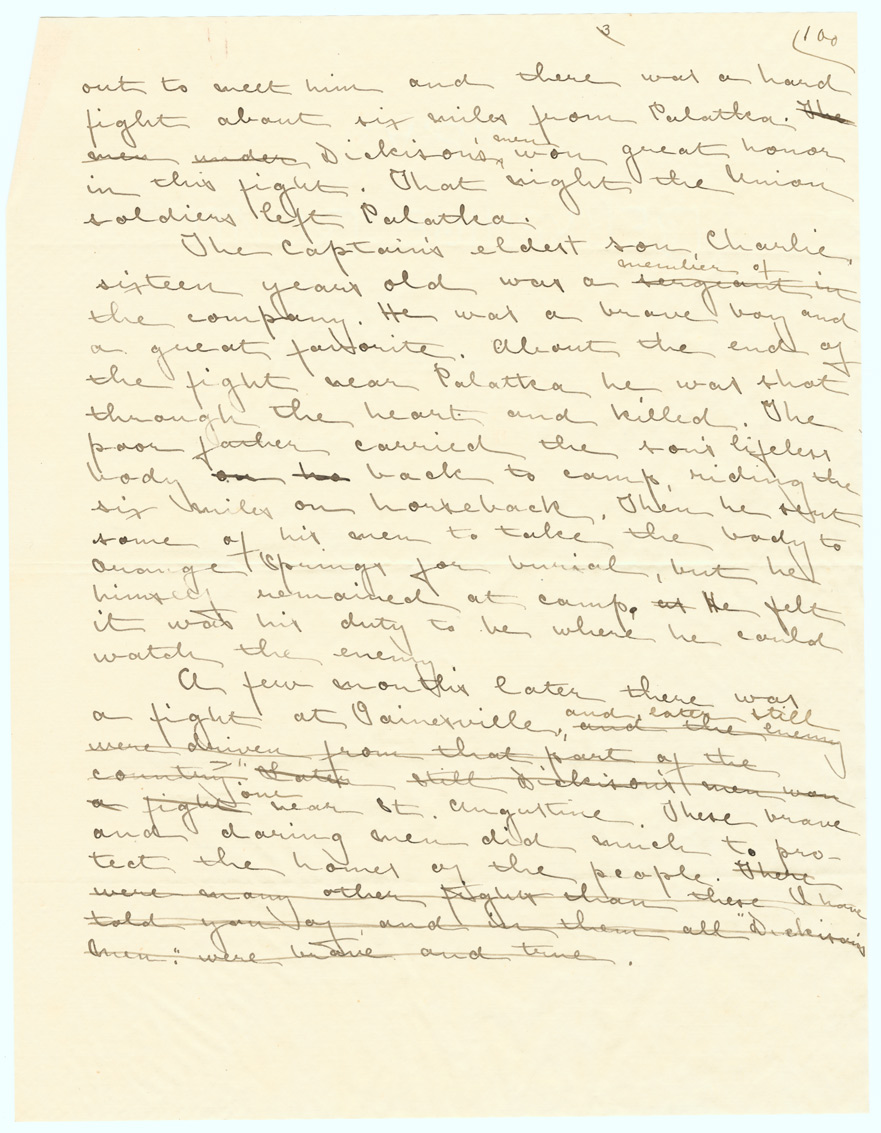 3 100
out to meet him and there was a hard
fight about six miles from Palatka. ~~The~~
~~men under~~ Dickison's men won great honor
in this fight. That night the Union
soldiers left Palatka.
The Captain's eldest son, Charlie,
sixteen years old was a member of ~~sergeant in~~
the company. He was a brave boy and
a great favorite. About the end of
the fight near Palatka he was shot
through the heart and killed. The
poor father carried the son's lifeless
body ~~on his~~ back to camp, riding the
six miles on horseback. Then he sent
some of his men to take the body to
Orange Springs for burial, but he
himself remained at camp. ~~as~~ He felt
it was his duty to be where he could
watch the enemy.
A few months later there was
a fight at Gainesville, and later still ~~and the enemy~~
~~were driven from that part of the~~
~~country. Later still Dickison's men won~~
~~a fight~~ one near St. Augustine. These brave
and daring men did much to pro-
tect the homes of the people. ~~There~~
~~were many other fights than these I have~~
~~told you of and in them all "Dickison's~~
~~Men" were brave and true.~~